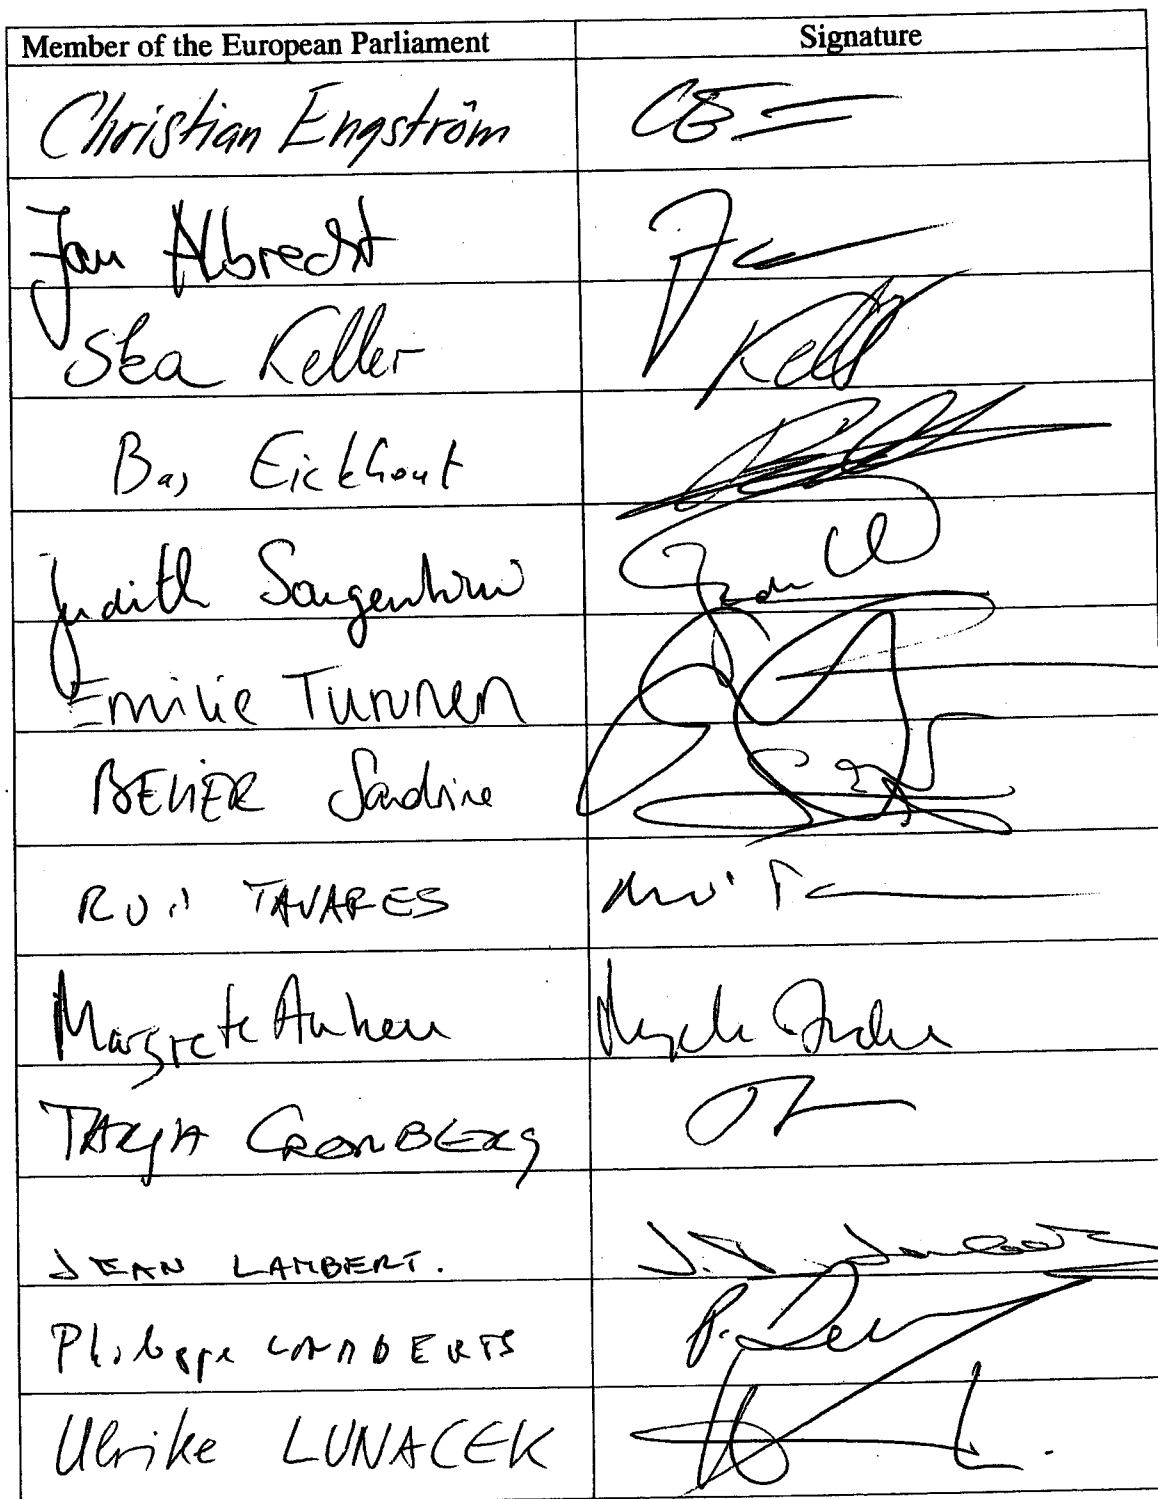 Member of the European Parliament Signature
Christian Engström CE
Jan Albrecht
Ska Keller Kell
Bas Eickhout
Judith Sargentini
Emilie Turunen
BELIER Sandrine
RUI TAVARES Rui T
Margrete Auken Margrete Auken
TARJA CRONBERG
JEAN LAMBERT. J.D. Lambert
Philippe LAMBERTS P.
Ulrike LUNACEK